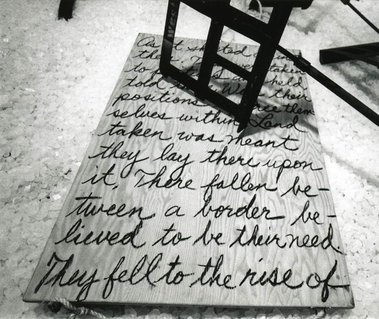 As it started in
their This taken
to held
told We their
positions place them
selves within Land
taken was meant
they lay there upon
it. There fallen be-
tween a border be-
lieved to be their need.
They fell to the rise of